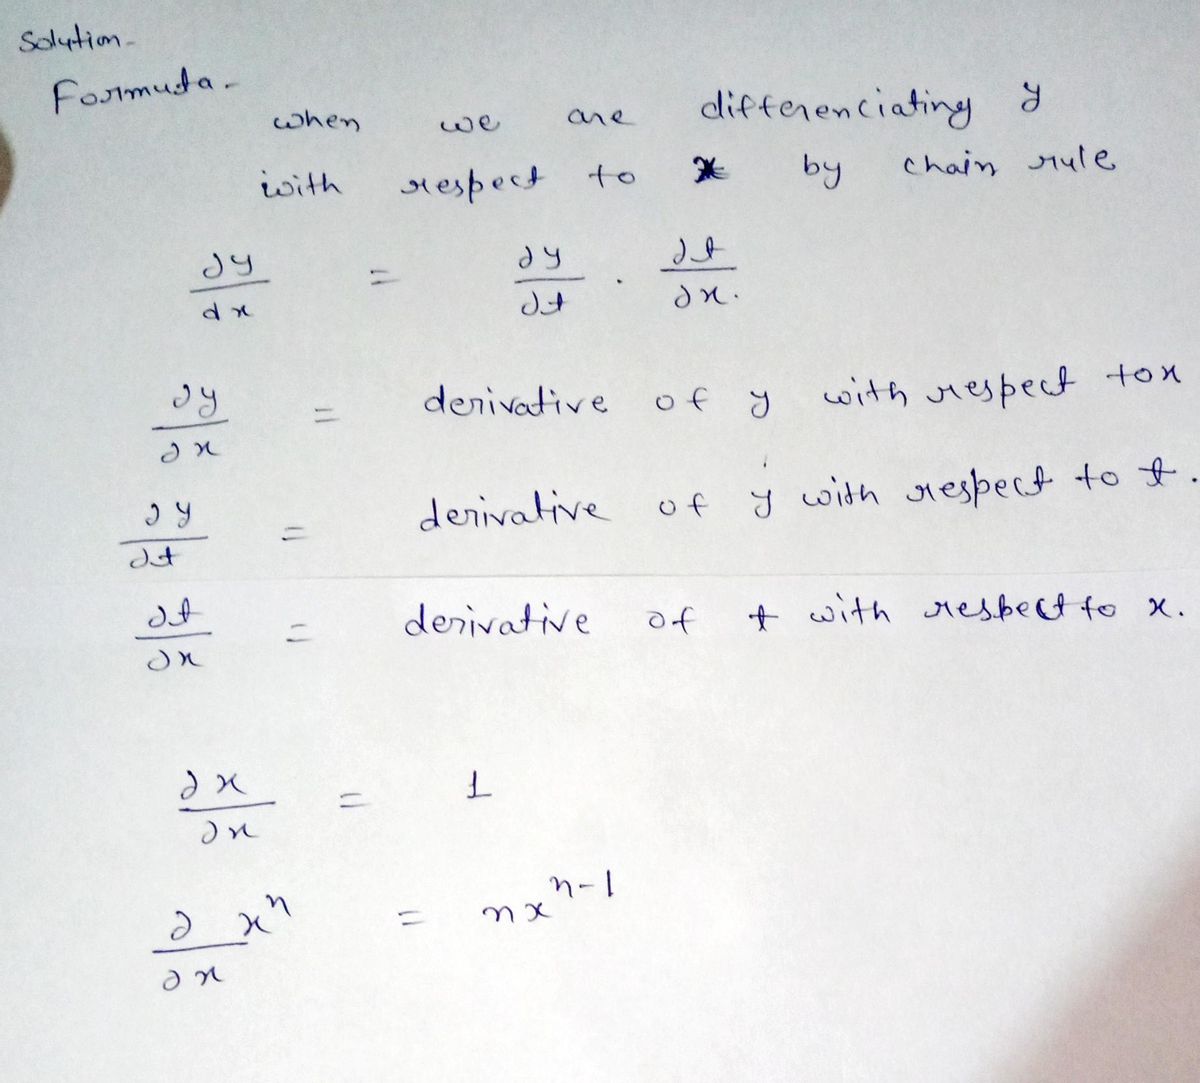 Solution-
Formula-
when we are differenciating y
with respect to x by chain rule
∂y/dx = ∂y/∂t . ∂t/∂x.
∂y/∂x = derivative of y with respect to x
∂y/∂t = derivative of y with respect to t.
∂t/∂x = derivative of t with respect to x.
∂x/∂x = 1
∂/∂x x^n = nx^n-1